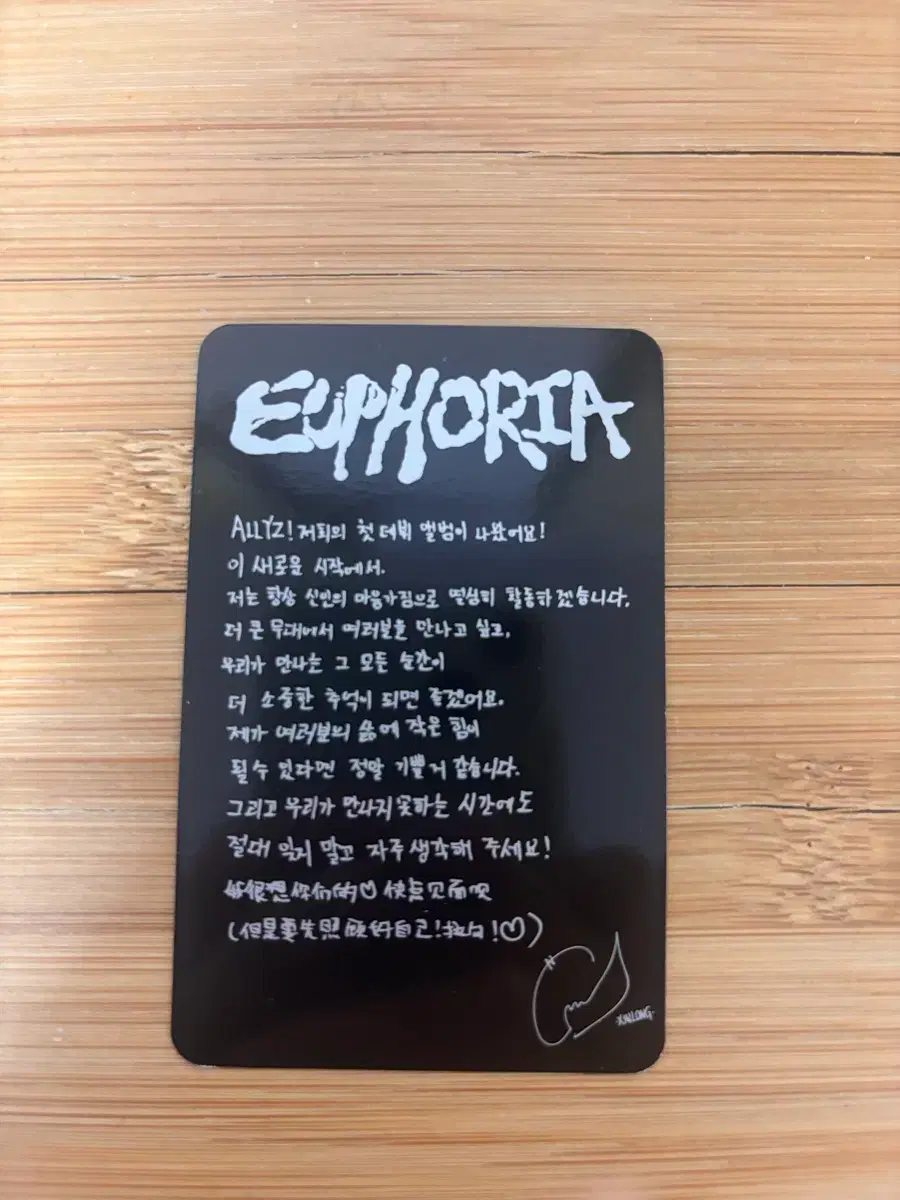 EUPHORIA
ALLYZ! 저희의 첫 데뷔 앨범이 나왔어요!
이 새로운 시작에서.
저는 항상 신인의 마음가짐으로 열심히 활동하겠습니다.
더 큰 무대에서 여러분을 만나고 싶고,
우리가 만나는 그 모든 순간이
더 소중한 추억이 되면 좋겠어요.
제가 여러분의 삶에 작은 힘이
될 수 있다면 정말 기쁠 거 같습니다.
그리고 우리가 만나지 못하는 시간에도
절대 잊지 말고 자주 생각해 주세요!
很想你们的♡ 快点见面呗
(但是要先照顾好自己! !♡)
XINLONG